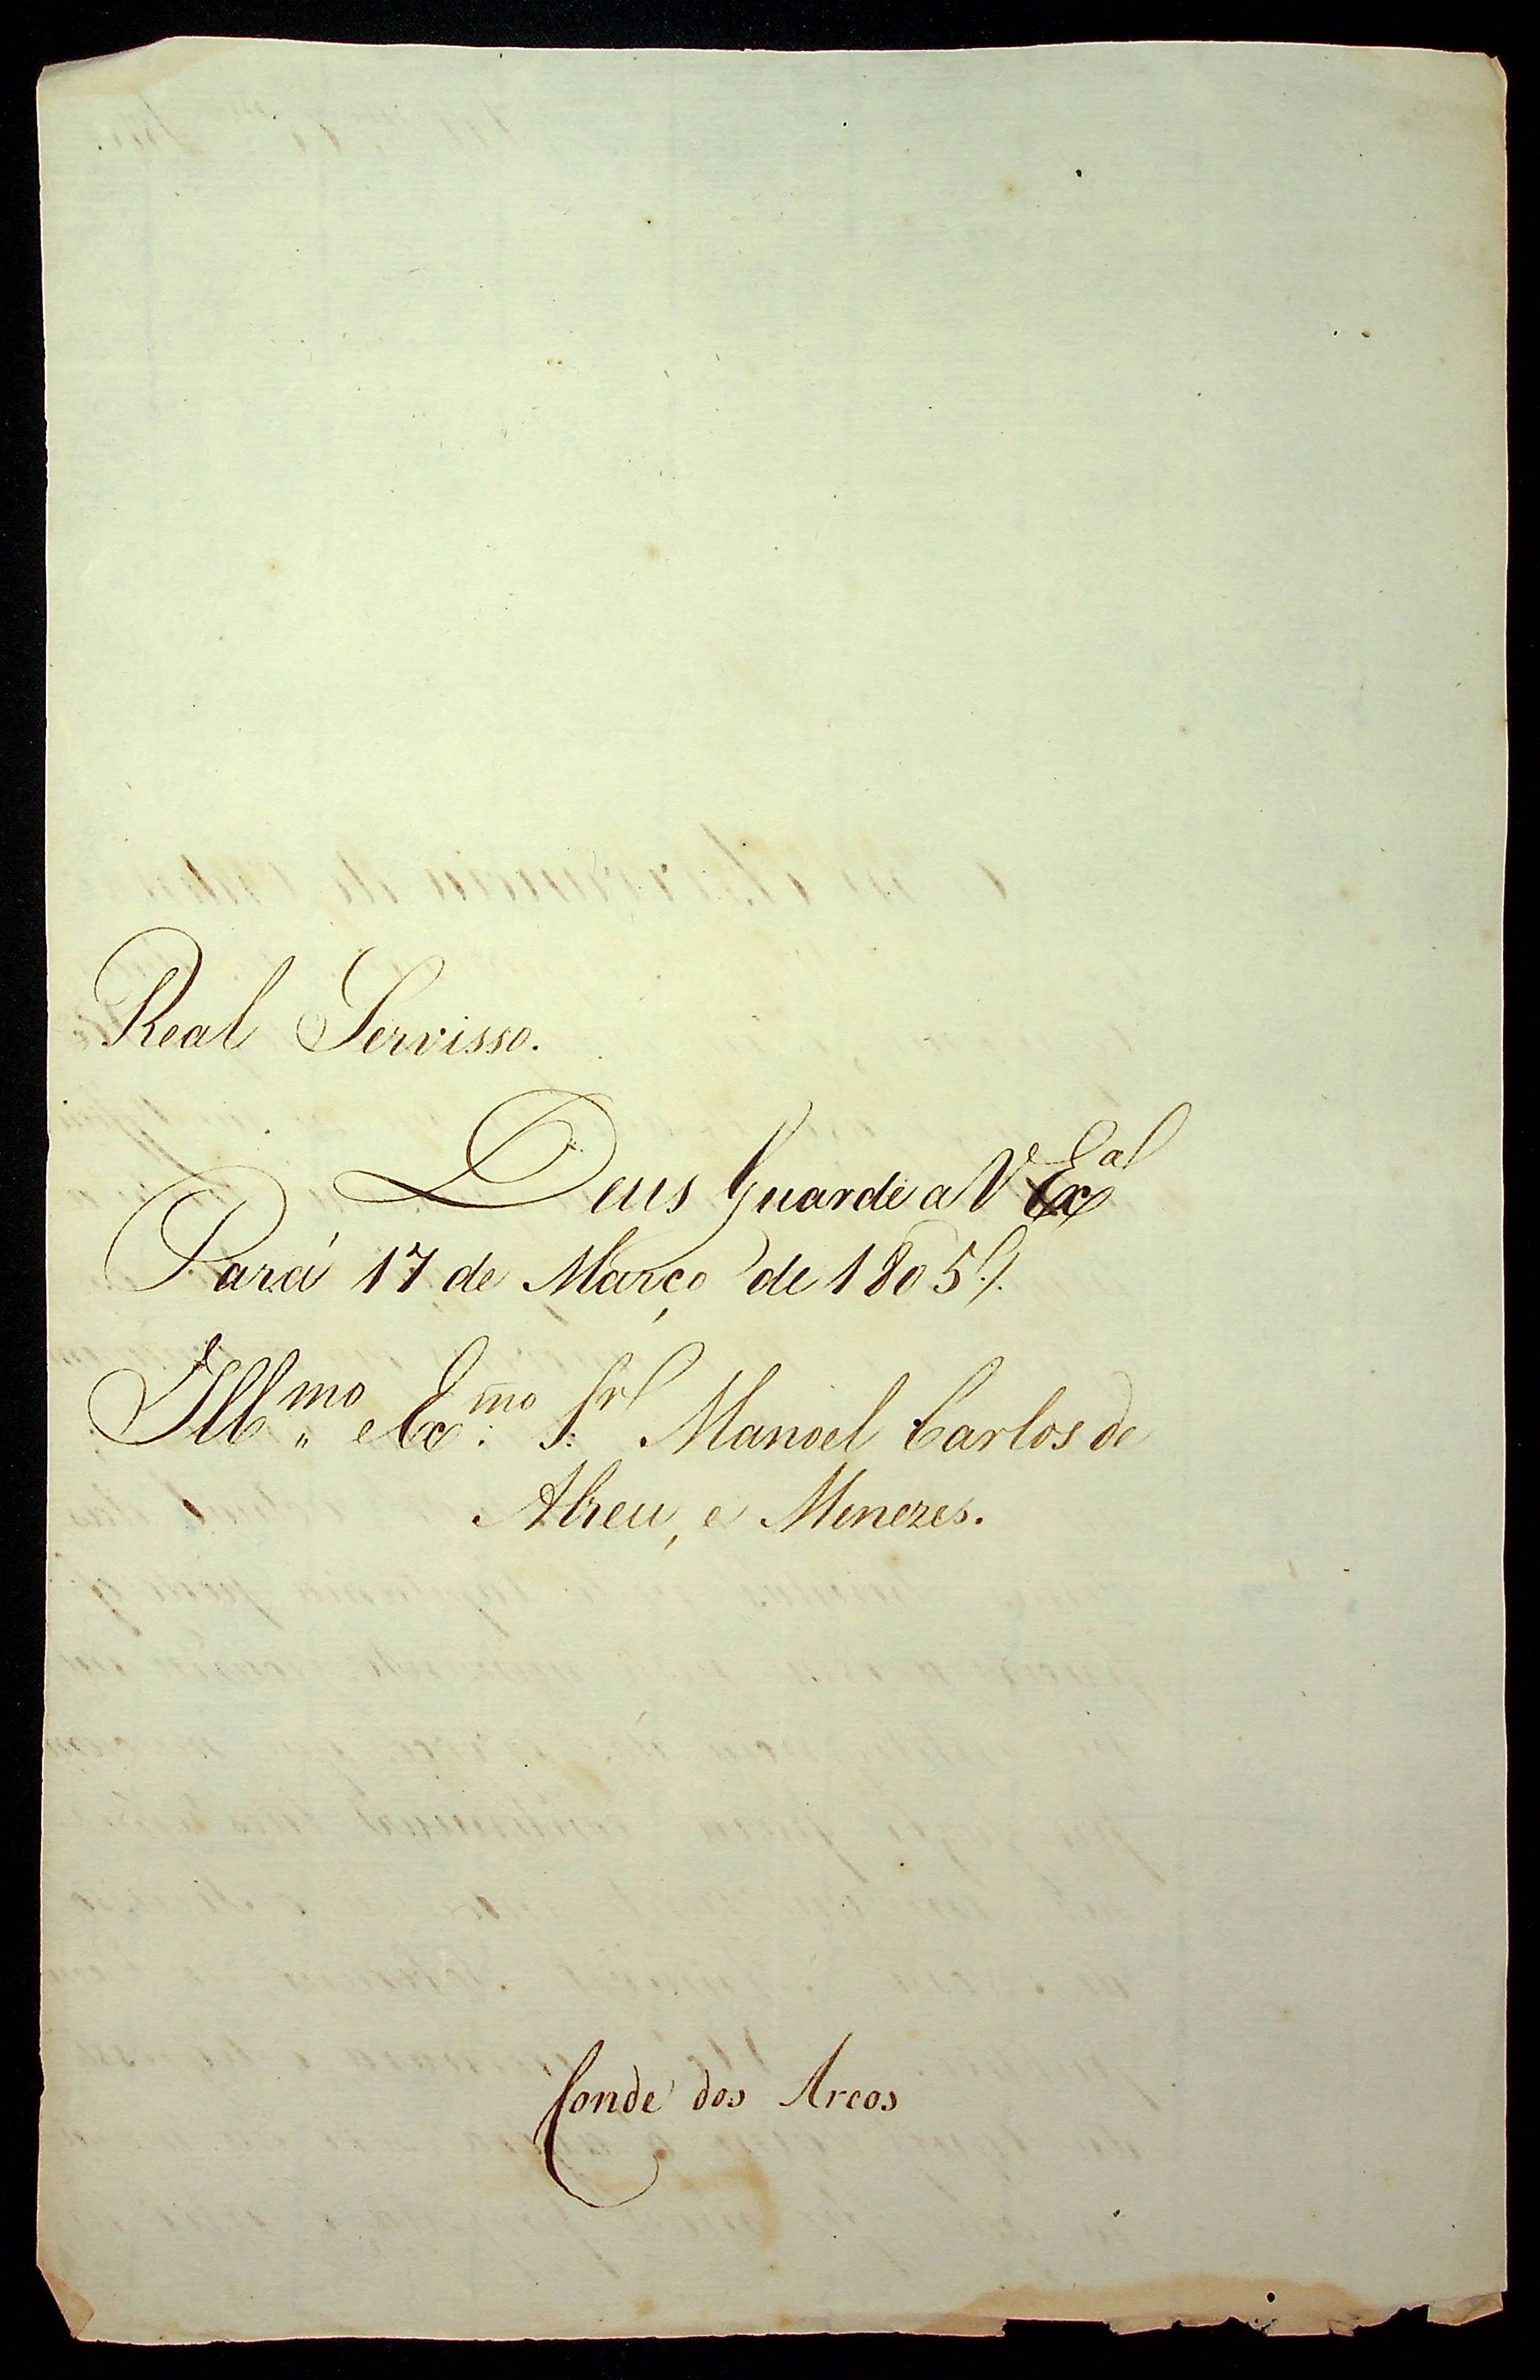 Real Servisso.
Deus Guarde a V Exª
Pará 17 de Março de 1805 //.
Illmo e Exmo Sr Manoel Carlos de
Abreu, e Menezes.
Conde dos Arcos